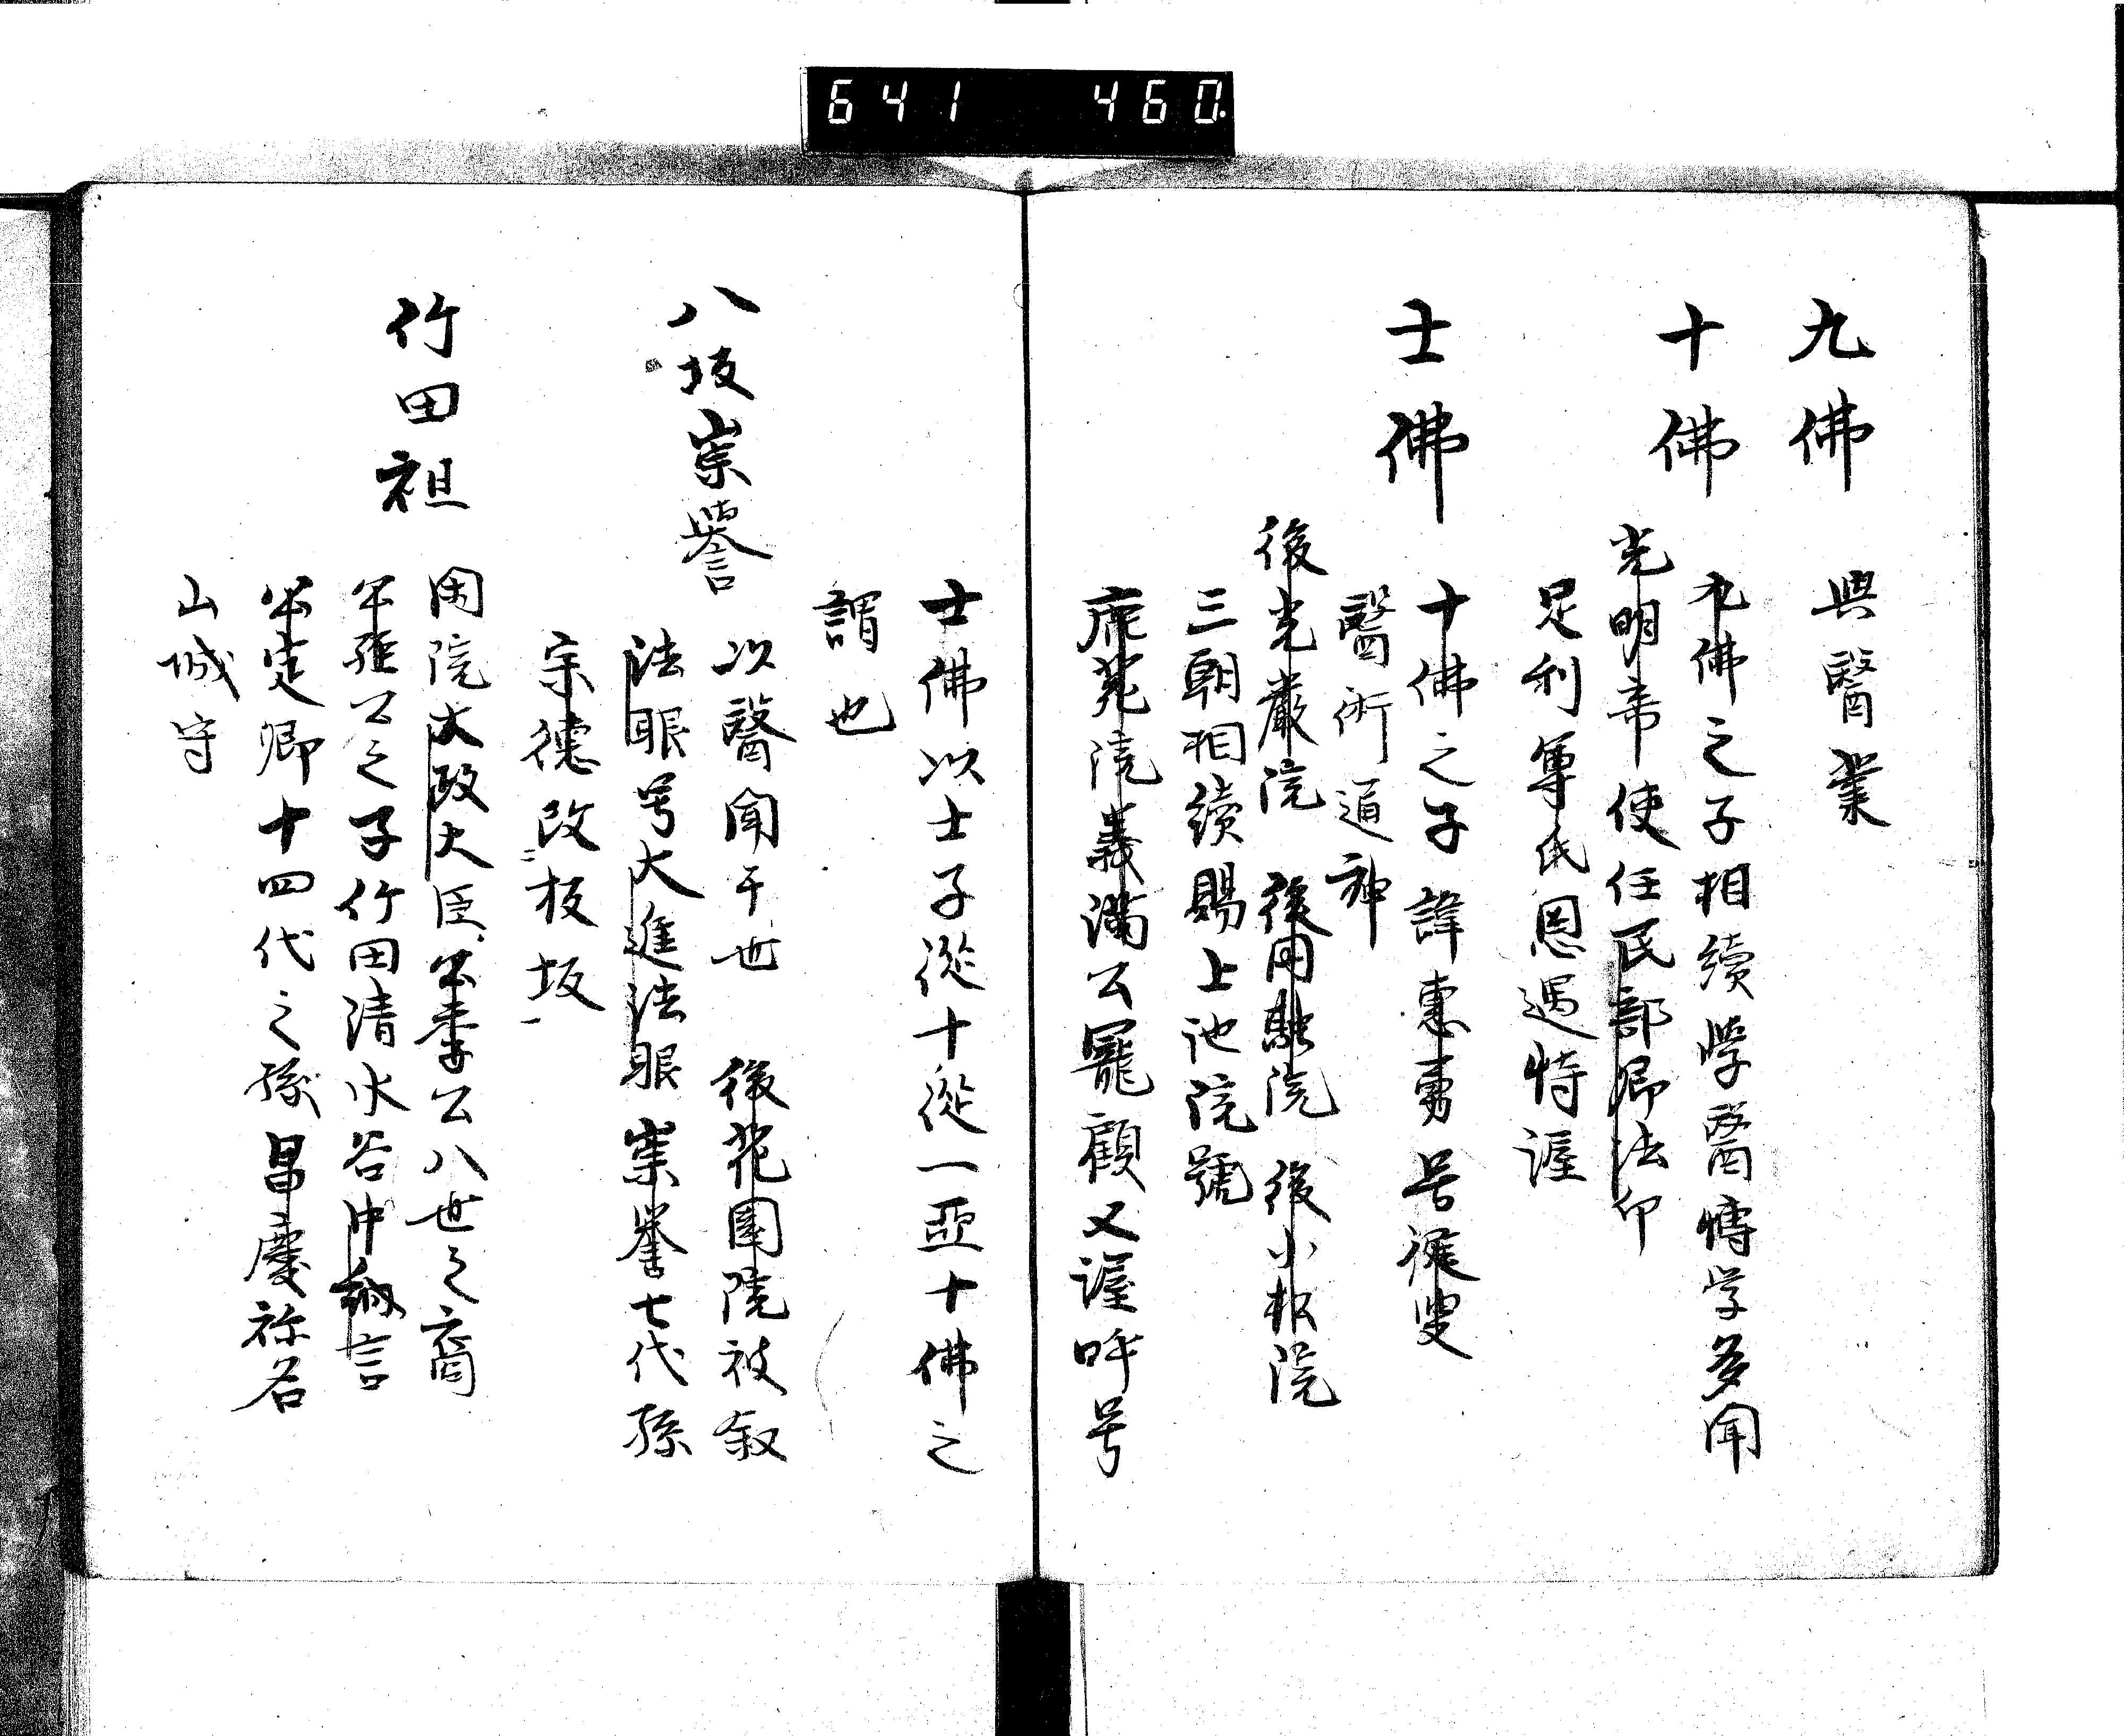 641 460
九佛 興醫業
十佛 九佛之子相續学醫博学多聞
光明帝使任民部卿法印
足利尊氏恩遇特渥
士佛 十佛之子諱惠勇号健叟
醫術通神
後光嚴院 後円融院 後小松院
三朝相續賜上池院號
鹿苑院義滿公寵顧又渥呼号
士佛以士子從十從一亞十佛之
謂也
八坂崇譽 以醫聞于世 後花園院被叙
法眼号大進法眼崇誉七代孫
宗德改板坂
竹田祖 閑院太政大臣公季公八世之裔
公経公之子竹田清水谷中納言
公定卿十四代之孫昌慶称名
山城守